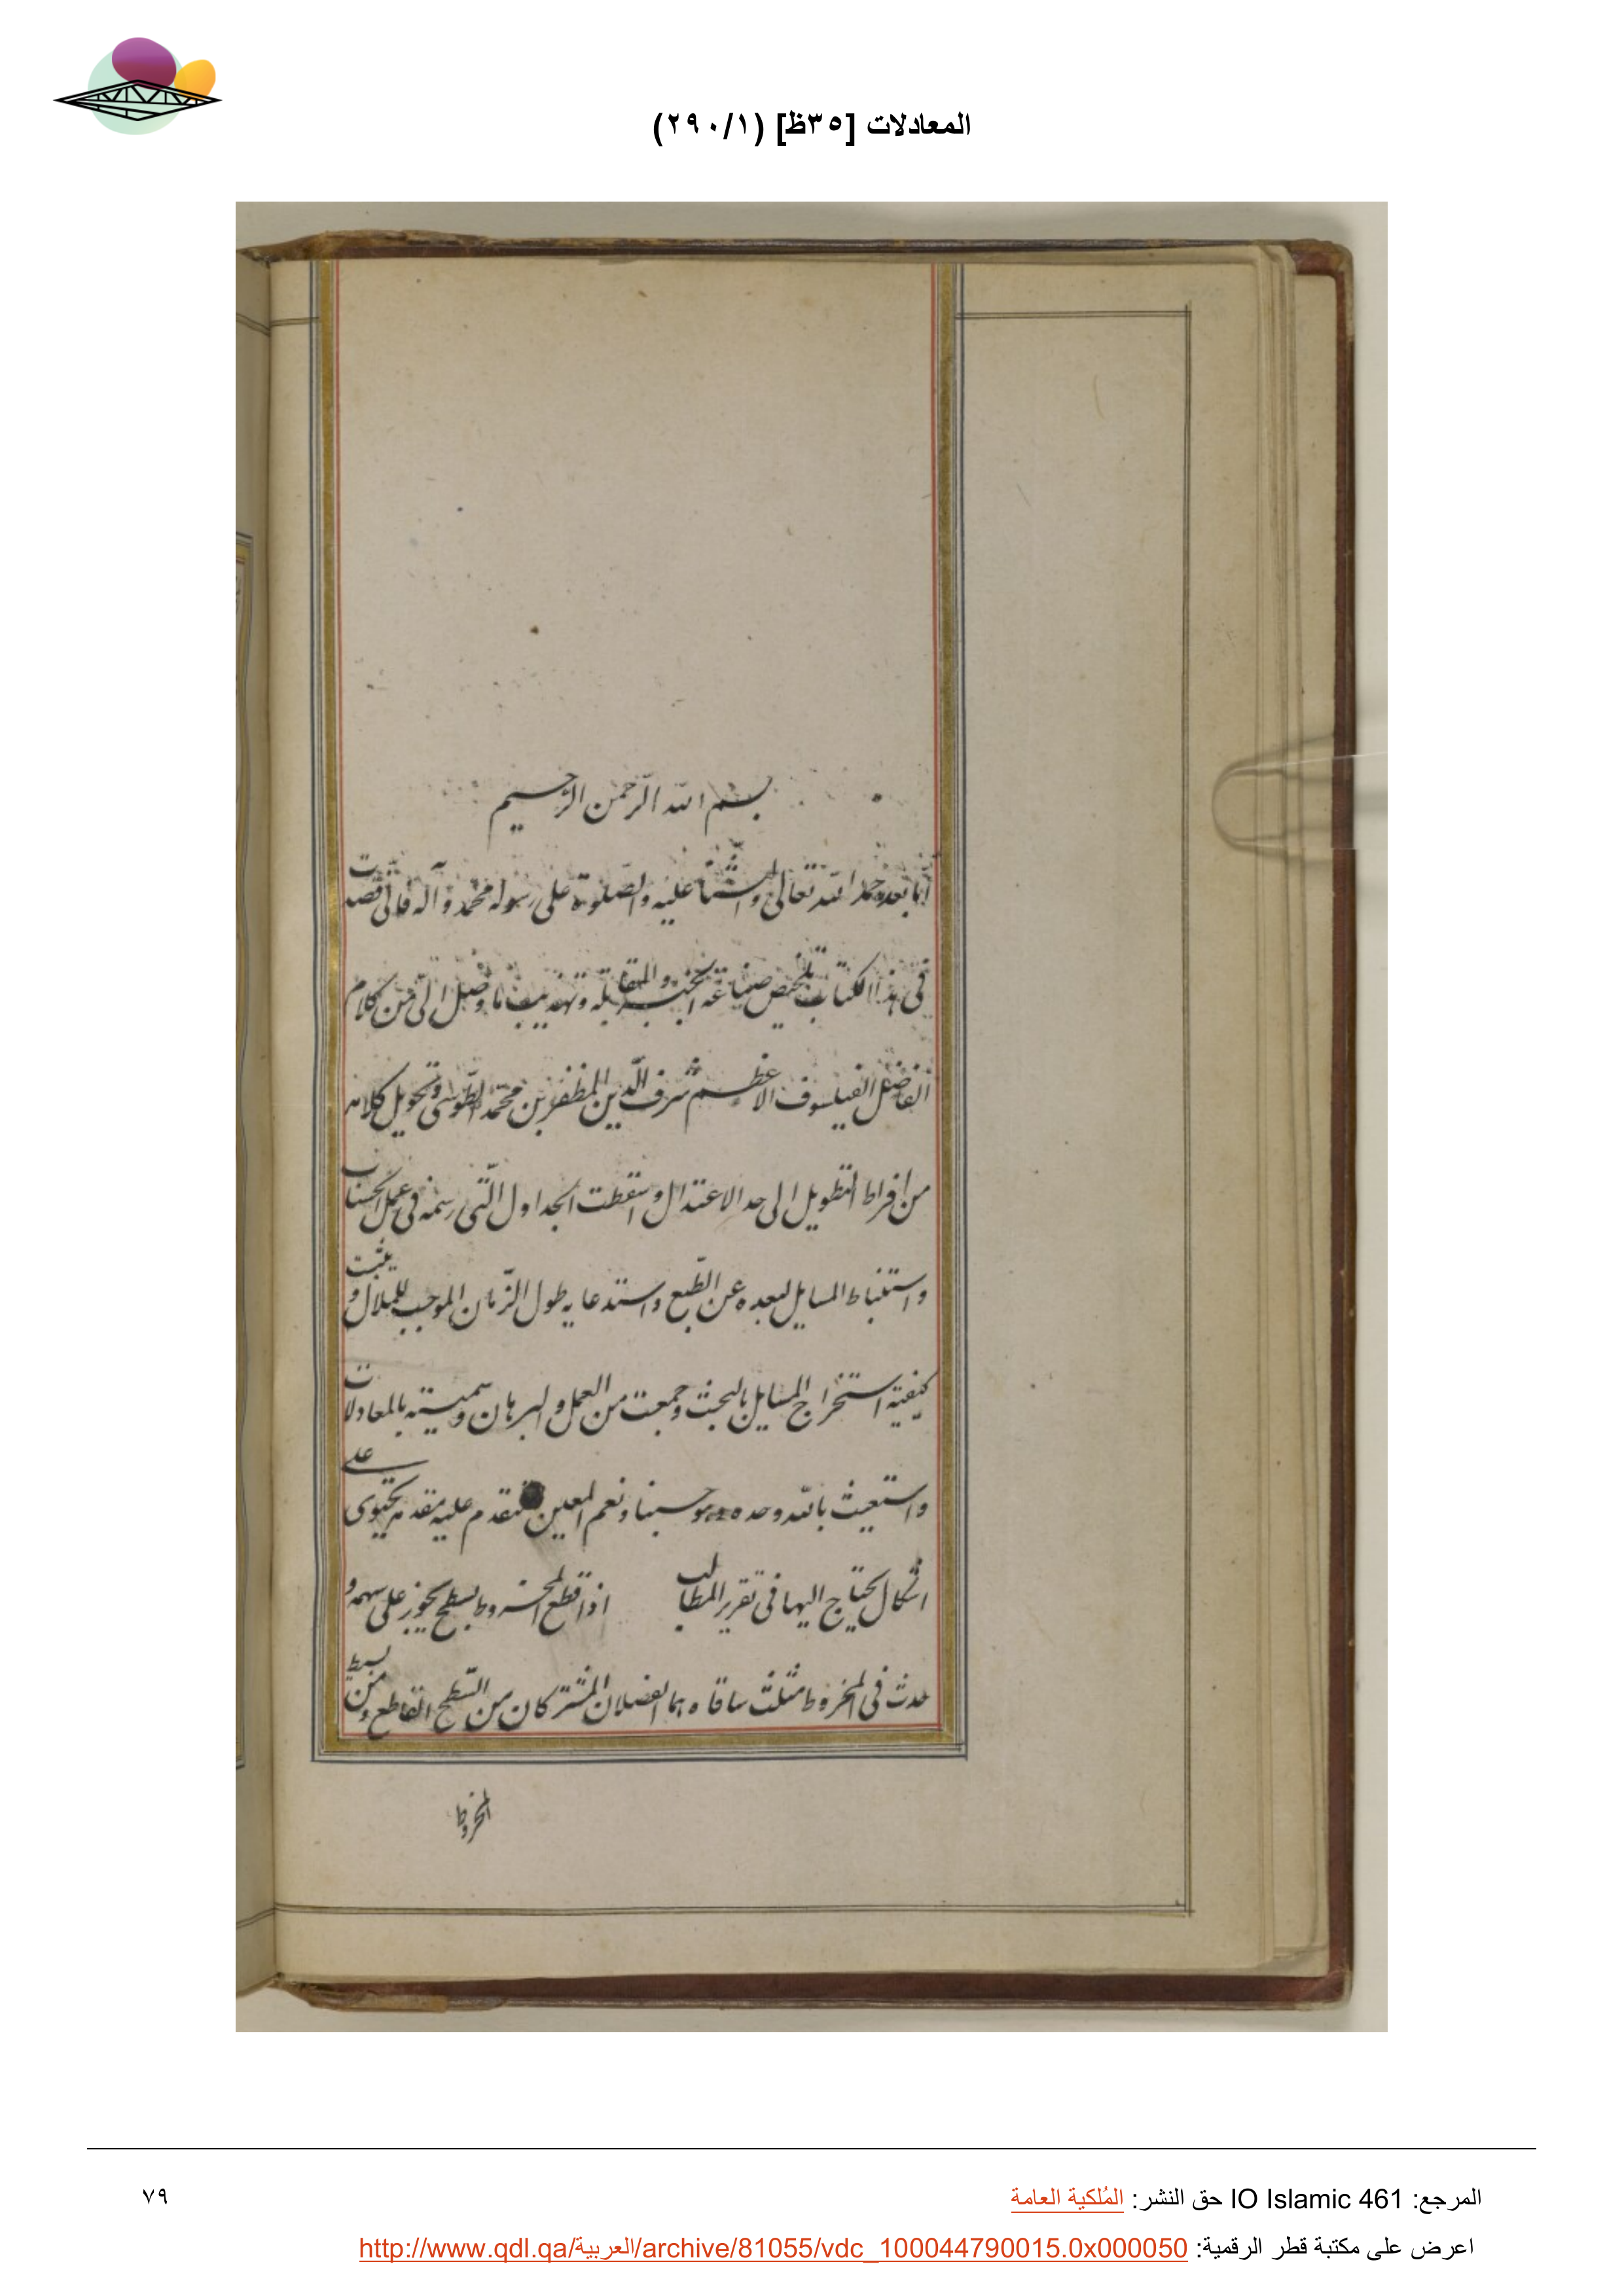 المعادلات [٣٥ظ] (٢٩٠/١)
بسم الله الرّحمن الرّحيم
أمّا بعد حمد الله تعالى والثّناء عليه والصّلوة على رسوله محمّد وآله فانّى قصدت
فى هذا الكتاب تلخيص صناعة الجبر والمقابلة وتهذيب ما وصل الىّ من كلام
الفاضل الفيلسوف الاعظم شرف الدّين المظفّر بن محمّد الطّوسى وتحويل كلامه
من افراط التطويل الى حد الاعتدال واسقطت الجداول الّتى رسمه فى عمل الحساب
واستنباط المسايل لبعده عن الطّبع واستدعايه طول الزّمان الموجب للملال وثبت
كيفية استخراج المسايل بالبحث وجمعت من العمل والبرهان وسميته بالمعادلات
واستعيت بالله وحده وهو حسبنا ونعم المعين نتقدم عليه مقدمه يحتوى على
اشكال يحتاج اليها فى تقرير المطالب اذا قطع المخروط بسطح يجوز على سهمه و
حدث فى المخروط مثلث ساقاه هما الفضلان المشتركان من السّطح القاطع ومن بسيط
المخروط
المرجع: IO Islamic 461 حق النشر: المُلكية العامة
٧٩
اعرض على مكتبة قطر الرقمية: http://www.qdl.qa/العربية/archive/81055/vdc_100044790015.0x000050